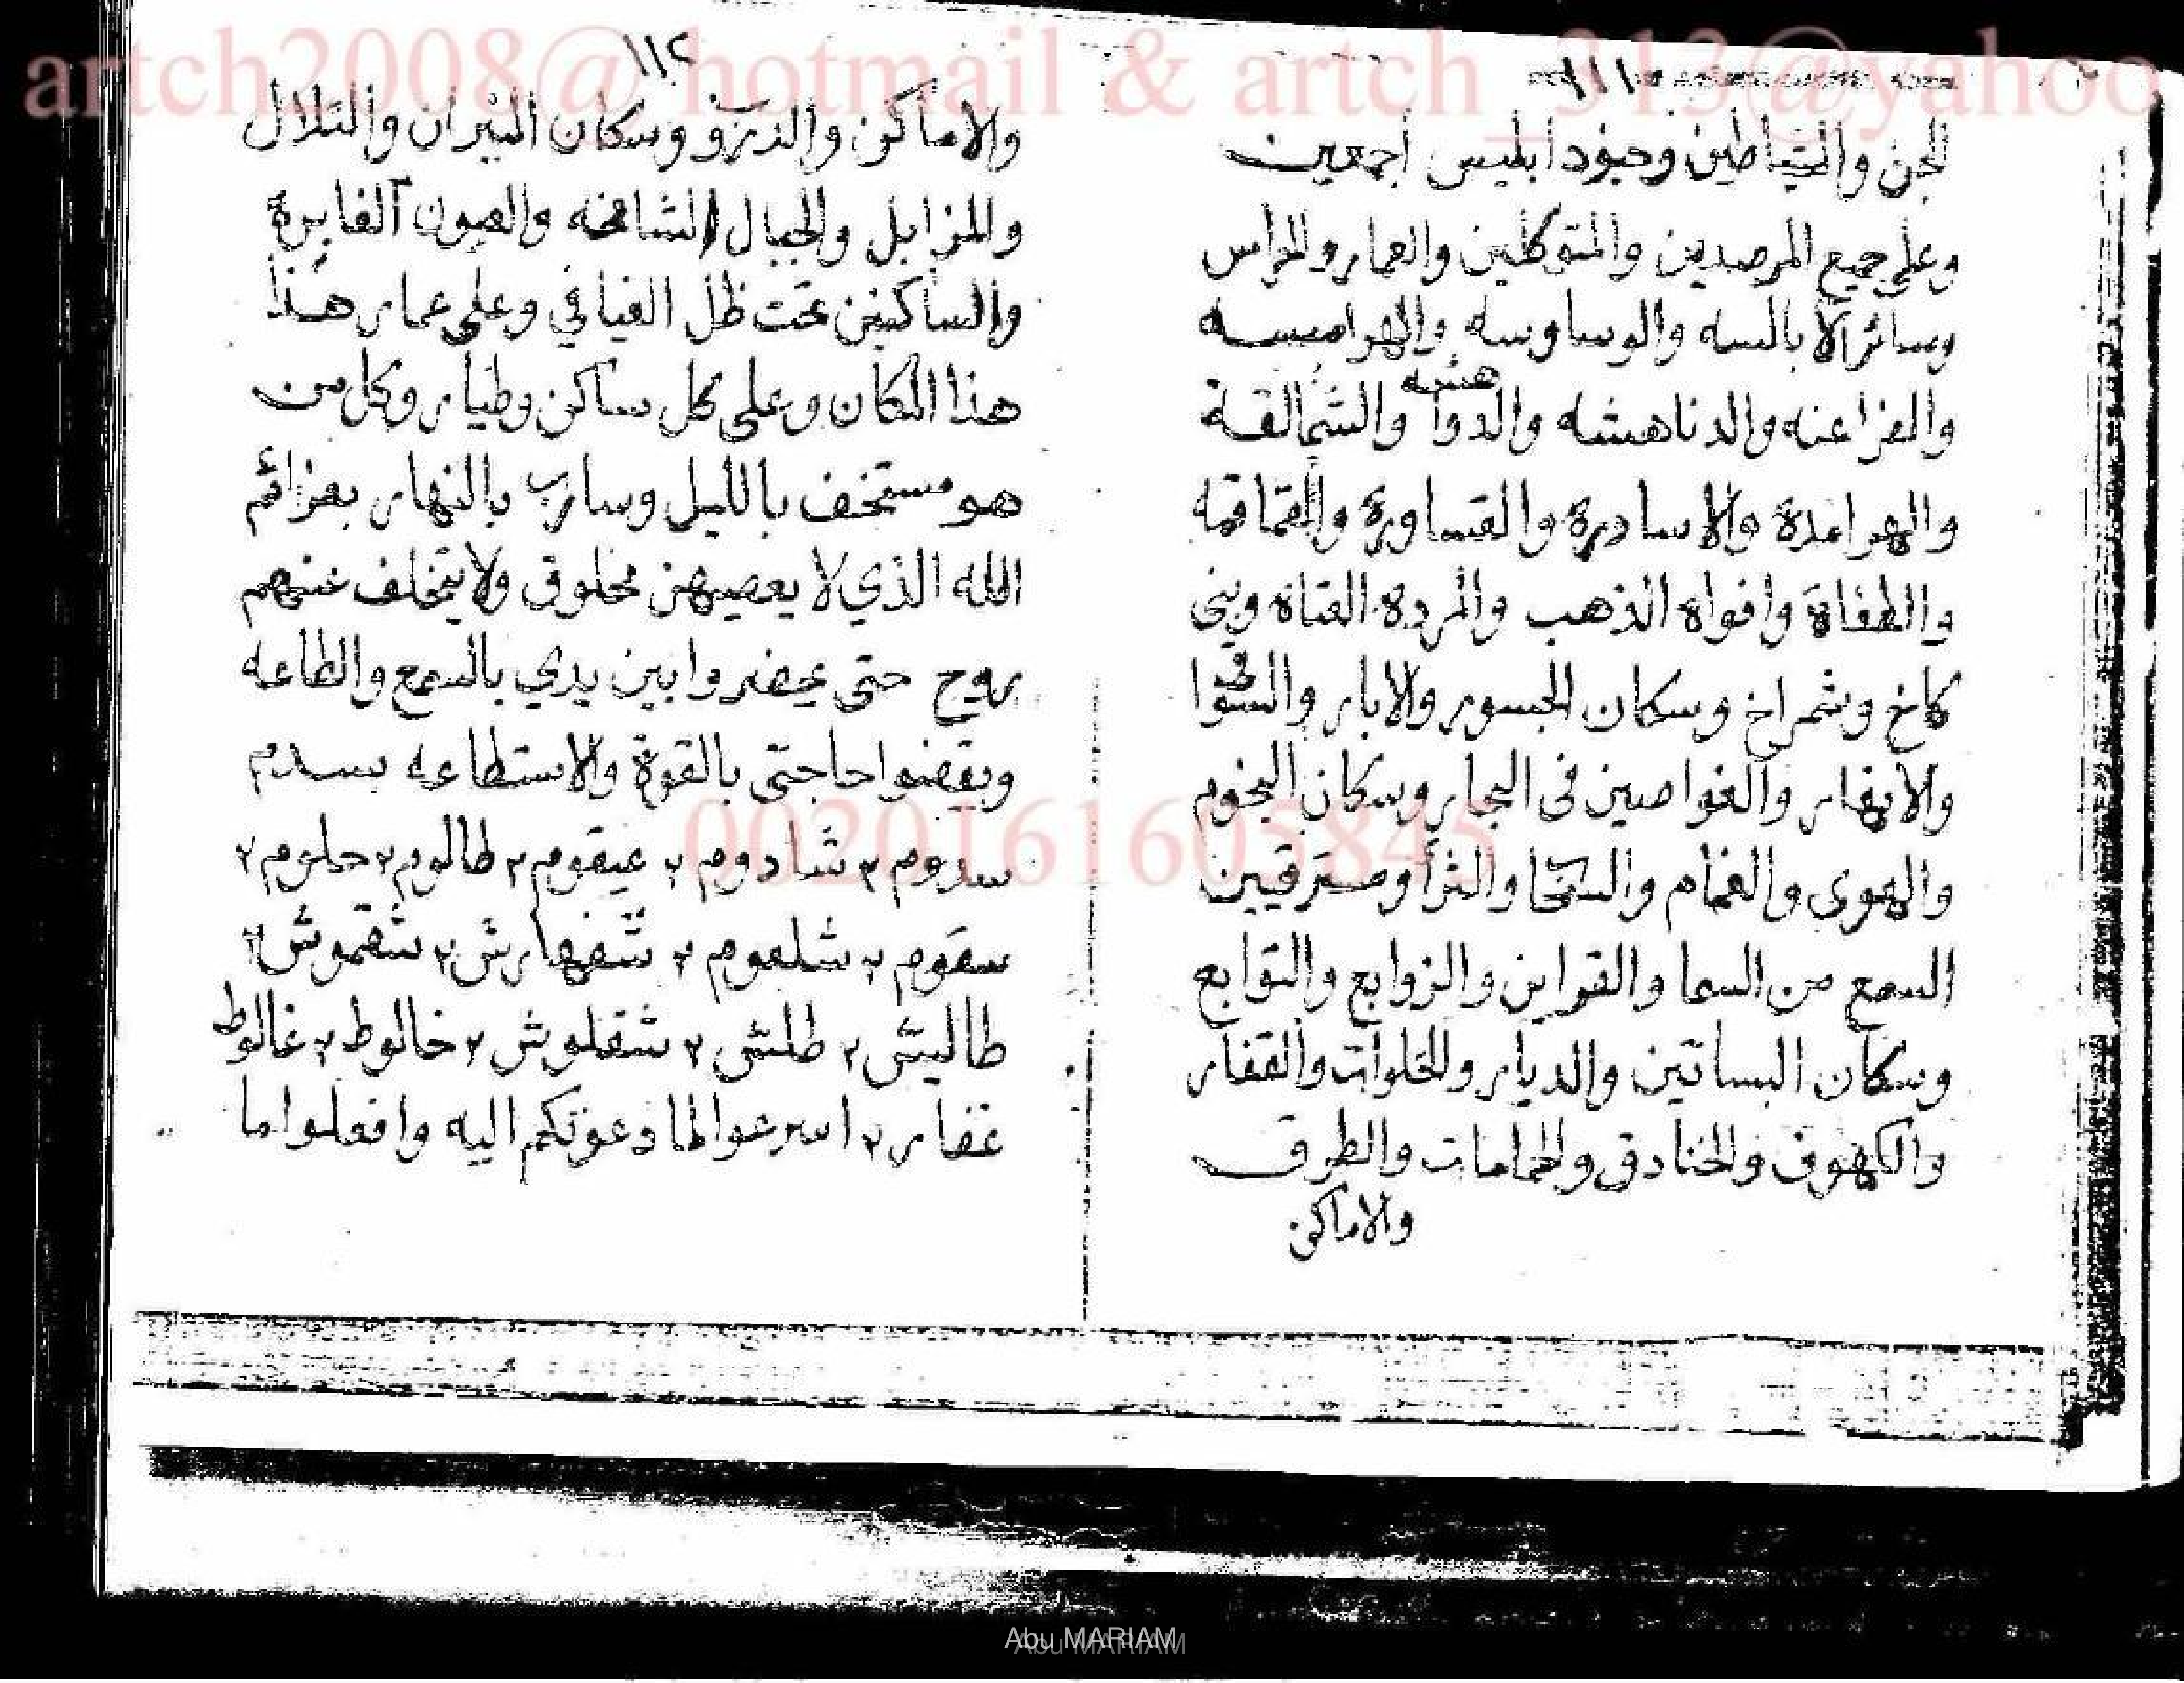 artch2008@ hotmail & artch_313@yahoo
١١١
الجن والشياطين وجنود ابليس أجمعين
وعلى جميع المرصدين والمتوكلين والعمار والحراس
وسائر الابالسه والوساوسه والهواميسه
والفراعنه والدناهشه والدواهشه والشمالقة
والهوامدة والاسادرة والقساورة والقماقمه
والطغاة وافواه الذهب والمردة العتاة وبني
كاخ وشمراخ وسكان الجسور والابار والشواقي
والانهار والغواصين فى البحار وسكان النجوم
والهوى والغمام والسحا والثرا ومسترقين
السمع من السما والقراين والزوابع والتوابع
وسكان البساتين والديار والخلوات والقفار
والكهوف والخنادق والحمامات والطرق
والاماكن
١١٢
والاماكن والدرو وسكان النيران والتلال
والمزابل والجبال الشامخه والعيون الغايرة
والساكنين تحت ظل الفيافي وعلى عمار هذا
هذا المكان وعلى كل ساكن وطيار وكل من
هو مستخف بالليل وسارب بالنهار بعزائم
الله الذي لا يعصيهن مخلوق ولا يتخلف عنهم
روح حتى يحضروا بين يدي بالسمع والطاعه
ويقضوا حاجتى بالقوة والاستطاعه بسدم
سدوم ٢ شادوم ٢ عيقوم ٢ طالوم ٢ حلوم ٢
سقوم ٢ شلعوم ٢ شفهارش ٢ شقموش ٢
طاليش ٢ طلش ٢ شقلوش ٢ خالوط ٢ غالوط
غفار ٢ اسرعوا لما دعوتكم اليه وافعلوا ما
0020161605845
Abu MARIAM